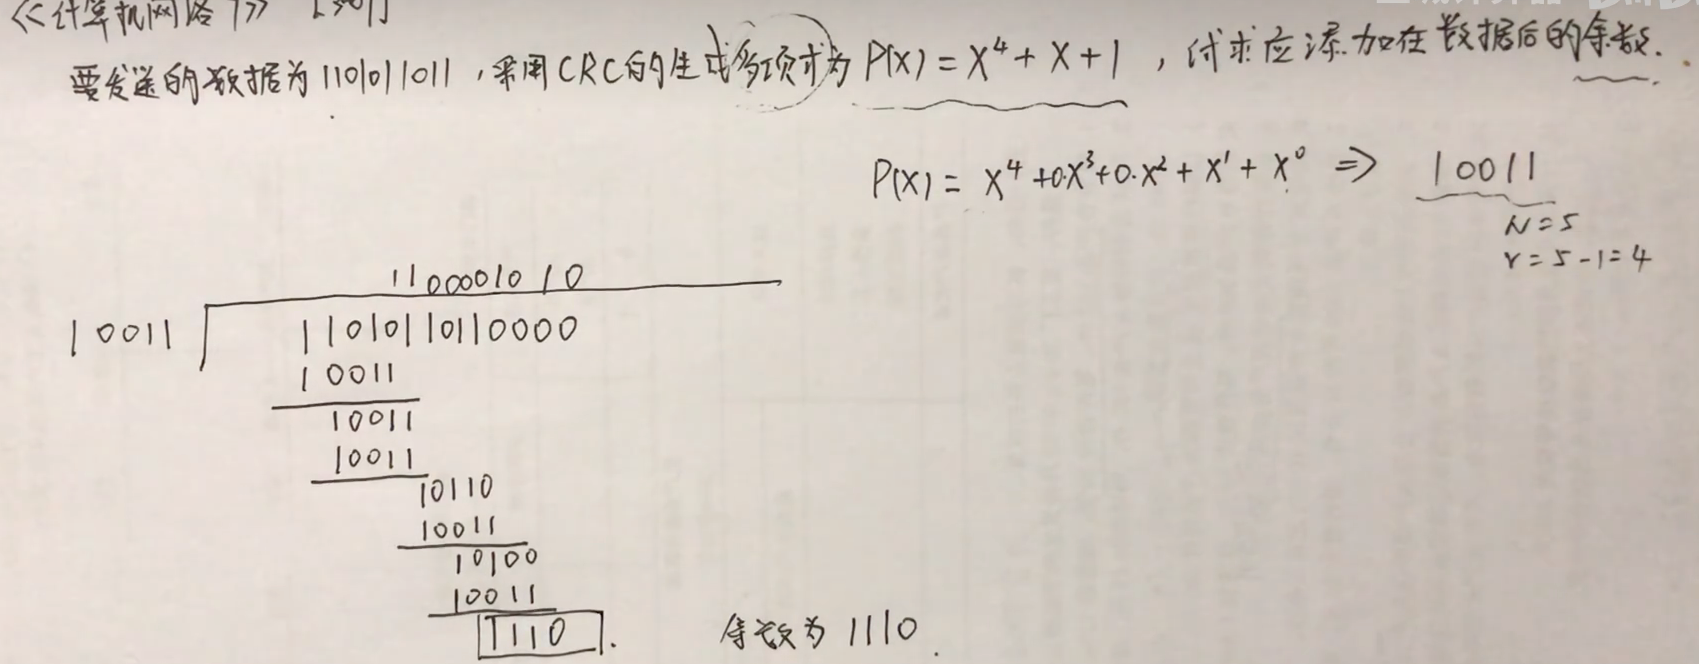 《计算机网络》
要发送的数据为1101011011，采用CRC的生成多项式为P(X)=X⁴+X+1，试求应添加在数据后的余数.
P(X)= X⁴+0X³+0.X²+X¹+X⁰ ⇒ 10011
N=5
r=5-1=4
1100001010
10011 11010110110000
10011
10011
10011
10110
10011
10100
10011
1110.
余数为1110.